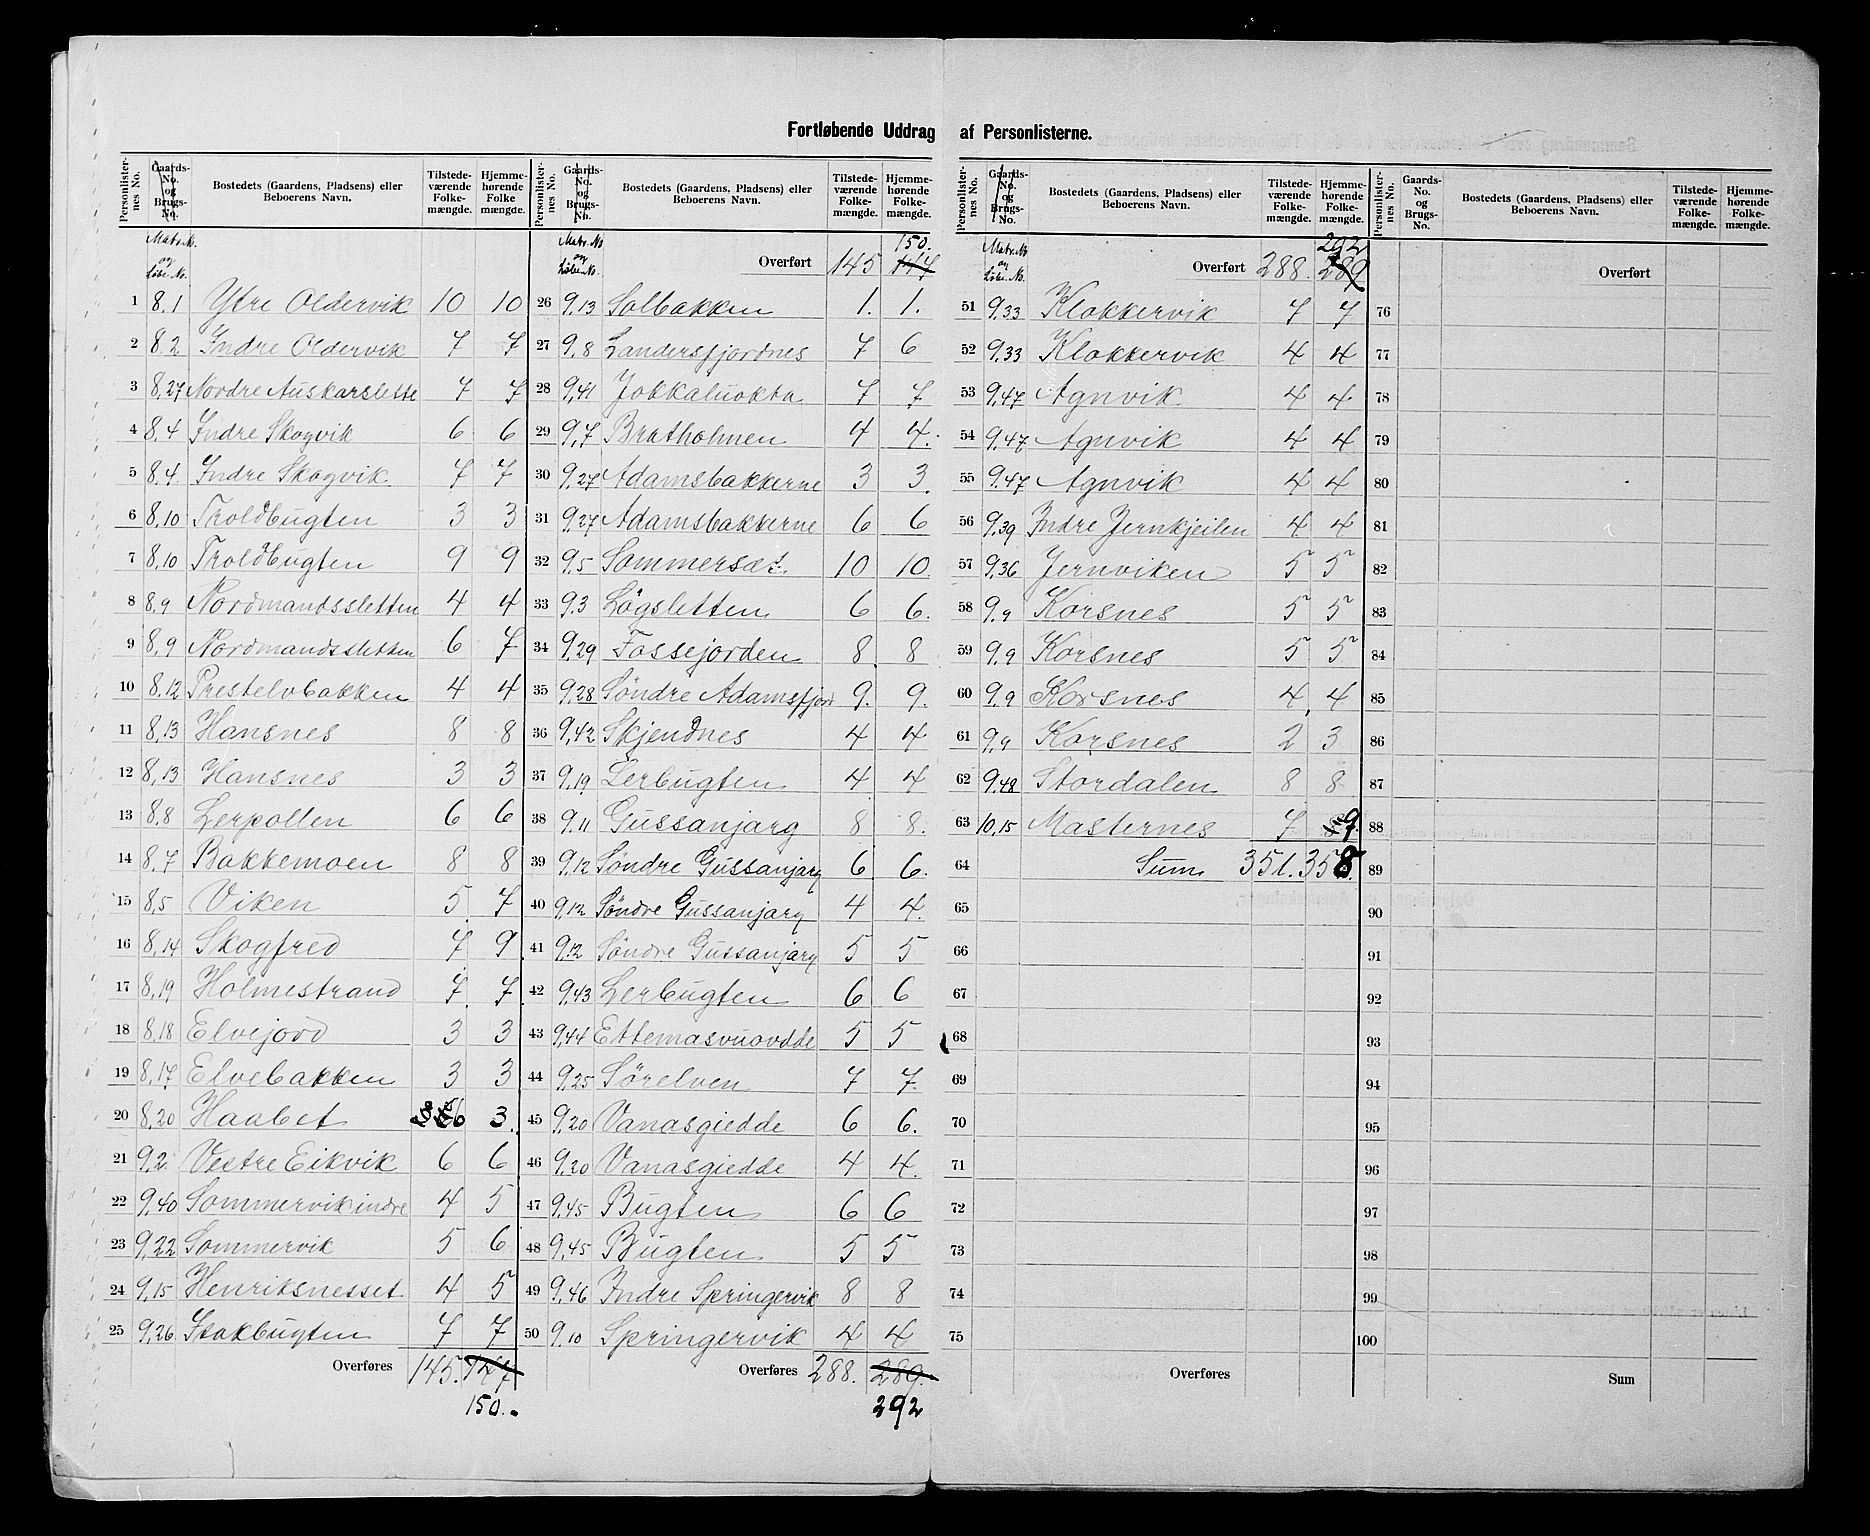 Fortløbende Uddrag af Personlisterne.
Personlister-nes No. Gaards-No. og Brugs-No. Bostedets (Gaardens, Pladsens) eller Beboerens Navn. Tilstede-værende Folke-mængde. Hjemme-hørende Folke mængde.
Matr. No. og Løbe No.
1 8.1 Ytre Oldervik 10 10
2 8.2 Indre Oldervik 7 7
3 8.27 Nordre Auskarslette 7 7
4 8.4 Indre Skogvik 6 6
5 8.4. Indre Skogvik 7 7
6 8.10 Troldbugten 3 3
7 8.10 Troldbugten 9 9
8 8.9 Nordmandssletten 4 4
9 8.9 Nordmandssletten 6 7
10 8.12 Prestelvbakken 4 4
11 8.13 Hansnes 8 8
12 8.13 Hansnes 3 3
13 8.8 Lerpollen 6 6
14 8.7 Bakkemoen 8 8
15 8.5 Viken 5 7
16 8.14 Skogfred 7 9
17 8.19 Holmestrand 7 7
18 8.18 Elvejord 3 3
19 8.17 Elvebakken 3 3
20 8.20 Haabet 6 3.
21 9.2 Vestre Eikvik 6 6
22 9.40 Sommervik indre 4 5
23 9.22 Sommervik 5 6
24 9.15 Henriksnesset 4 5
25 9.26 Stakbugten 7 7
Overføres 145. 147
150.
Personlister-nes No. Gaards-No. og Brugs-No. Bostedets (Gaardens, Pladsens) eller Beboerens Navn. Tilstede-værende Folke-mængde. Hjemme-hørende Folke-mængde.
150.
Matr. No og Løbe No. Overført 145 147
26 9.13 Solbakken 1. 1.
27 9.8 Landersfjordnes 7 6
28 9.41 Jokkaluokta 7 7
29 9.7 Bratholmen 4 4.
30 9.27 Adamsbakkerne 3 3.
31 9.27 Adamsbakkerne 6 6
32 9.5 Sommersæt 10 10.
33 9.3 Løgsletten 6 6.
34 9.29 Fossejorden 8. 8
35 9.28 Søndre Adamsfjord 9. 9.
36 9.42 Skjendnes 4 4
37 9.19 Lerbugten 4 4
38 9.11 Gussanjarg 8 8.
39 9.12 Søndre Gussanjarg 6 6.
40 9.12 Søndre Gussanjarg 4 4.
41 9.12 Søndre Gussanjarg 5 5
42 9.43 Lerbugten 6 6
43 9.44 Ettemasvuovdde 5 5
44 9.25 Sørelven 7 7.
45 9.20 Vanasgiedde 6 6.
46 9.20 Vanasgiedde 4 4.
47 9.45 Bugten 6 6
48 9.45 Bugten 5 5
49 9.46 Indre Springervik 8 8
50 9.10 Springervik 4 4
Overføres 288. 289.
292
Personlister-nes No. Gaards-No. og Brugs-No. Bostedets (Gaardens, Pladsens) eller Beboerens Navn. Tilstede-værende Folke-mængde. Hjemme-hørende Folke-mængde.
292
Matr. No og Løbe No. Overført 288. 289
51 9.33 Klokkervik 7 7
52 9.33 Klokkervik 4 4
53 9.47 Agnvik 4 4
54 9.47 Agnvik 4 4
55 9.47 Agnvik 4 4
56 9.39 Indre Jernkjeilen 4 4
57 9.36 Jernviken 5 5
58 9.9 Korsnes 5 5
59 9.9 Korsnes 5 5
60 9.9 Korsnes 4. 4
61 9.9 Korsnes 2 3
62 9.48 Stordalen 8 8
63 10.15 Masternes 7 9.
64 Sum 351. 358.
65
66
67
68
69
70
71
72
73
74
75
Overføres
Personlister-nes No. Gaards-No. og Brugs-No. Bostedets (Gaardens, Pladsens) eller Beboerens Navn. Tilstede-værende Folke-mængde. Hjemme-hørende Folke-mængde.
Overført
76
77
78
79
80
81
82
83
84
85
86
87
88
89
90
91
92
93
94
95
96
97
98
99
100
Sum